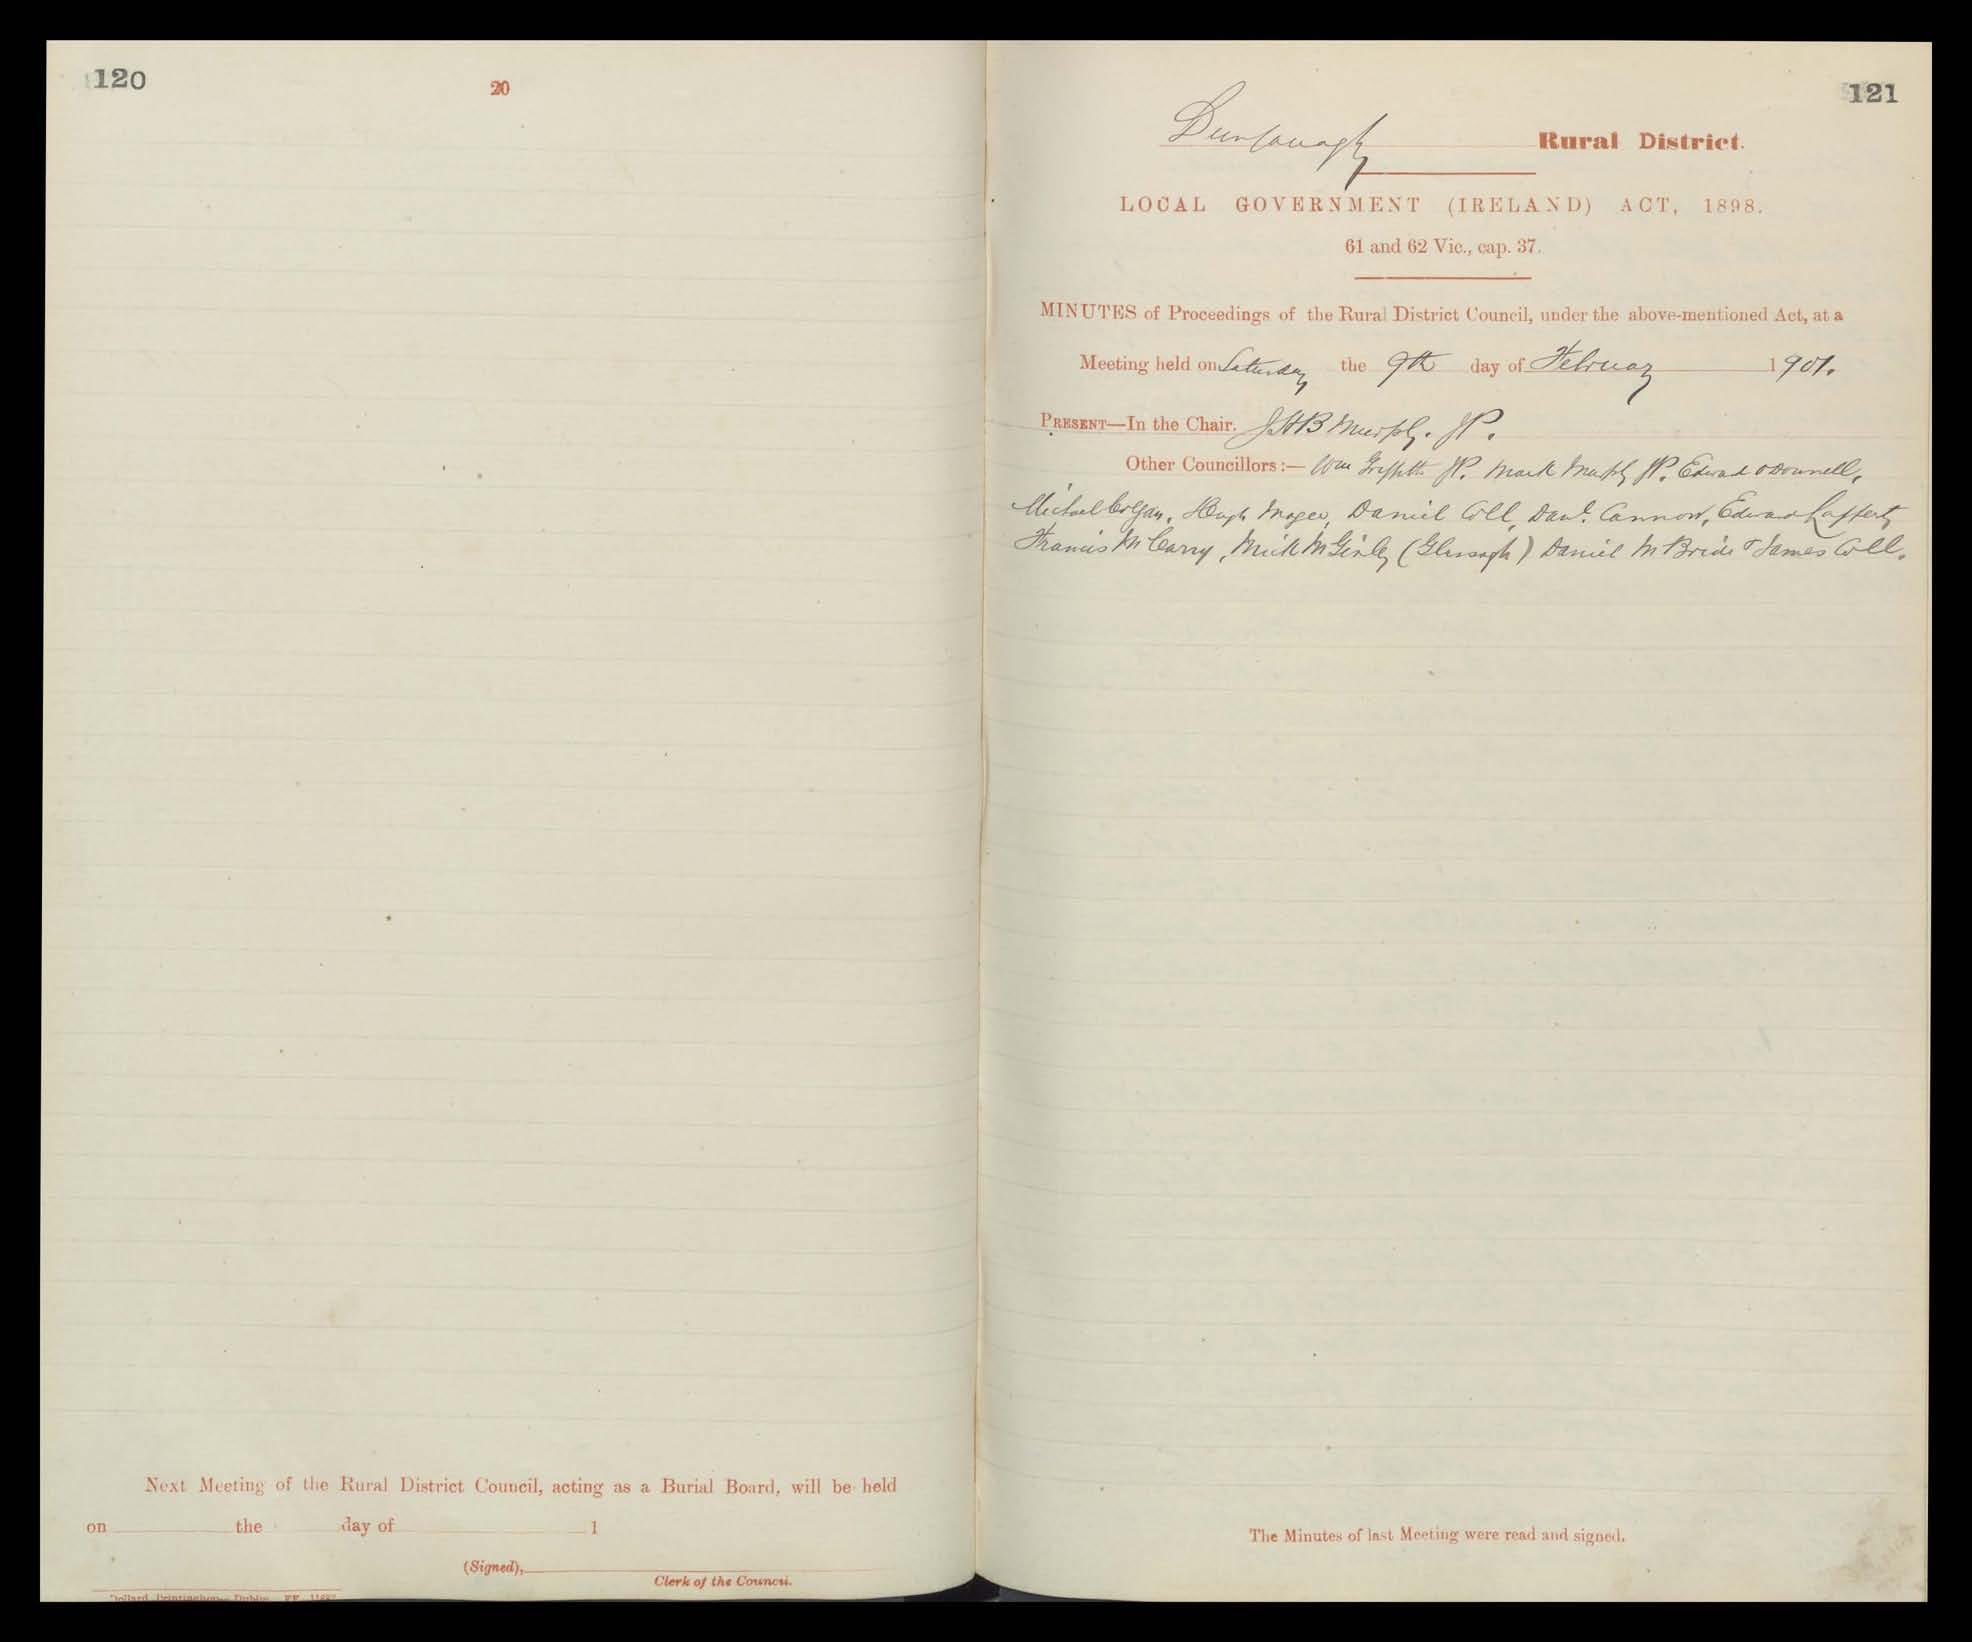 120
20
Next Meeting of the Rural District Council, acting as a Burial Board, will be held
on the day of 1
(Signed),
Clerk of the Council.
Dollard, Printinghouse, Dublin.
121
Dunfanaghy Rural District.
LOCAL GOVERNMENT (IRELAND) ACT, 1898.
61 and 62 Vic., cap. 37.
MINUTES of Proceedings of the Rural District Council, under the above-mentioned Act, at a
Meeting held on Saturday the 9th day of February 1901.
PRESENT—In the Chair. J.H.B Murphy. JP.
Other Councillors:— Wm Griffith JP. Mark Murphy JP. Edward O'Donnell,
Michael Colgan, Hugh Magee, Daniel Coll, Danl. Cannon, Edward Lafferty
Francis McCarry, Mick McGinley (Glensagh) Daniel McBride & James Coll.
The Minutes of last Meeting were read and signed.